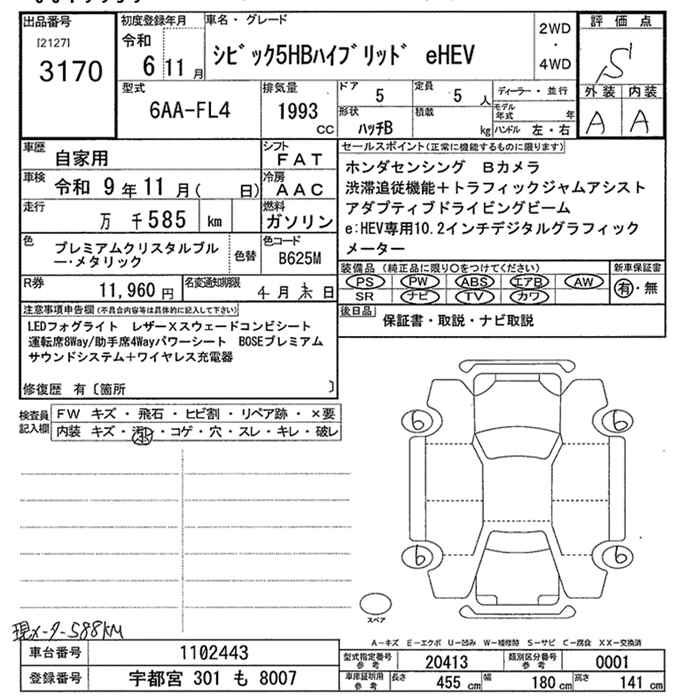 出品番号
[2127]
3170
初度登録年月
令和
6 11 月
車名・グレード
シビック5HBハイブリッド eHEV
2WD
・
4WD
評価点
S
外装 内装
A A
型式
6AA-FL4
排気量
1993
cc
ドア
5
定員
5 人
形状
ハッチB
積載
kg
ディーラー・並行
モデル年式 年
ハンドル 左・右
車歴
自家用
シフト
F A T
車検
令和 9 年 11 月 ( 日)
冷房
A A C
走行
万 千 585 km
燃料
ガソリン
色
プレミアムクリスタルブル
ー・メタリック
色替
色コード
B625M
R券
11,960 円
名変通知期限
4 月 末 日
セールスポイント(正常に機能するものに限ります)
ホンダセンシング Bカメラ
渋滞追従機能+トラフィックジャムアシスト
アダプティブドライビングビーム
e:HEV専用10.2インチデジタルグラフィック
メーター
装備品 (純正品に限り○をつけてください)
PS PW ABS エアB AW
SR ナビ TV カワ
新車保証書
有・無
後日品
保証書・取説・ナビ取説
注意事項申告欄(不具合内容等は具体的に記入して下さい)
LEDフォグライト レザーXスウェードコンビシート
運転席8Way/助手席4Wayパワーシート BOSEプレミアム
サウンドシステム+ワイヤレス充電器
修復歴 有〔箇所 〕
検査員
記入欄
FW キズ・飛石・ヒビ割・リペア跡・×要
内装 キズ・汚れ・コゲ・穴・スレ・キレ・破レ
6
6
6
6
スペア
現メーター588KM
A-キズ E-エクボ U-凹み W-補修跡 S-サビ C-腐食 XX-交換済
車台番号
1102443
登録番号
宇都宮 301 も 8007
型式指定番号
参考
20413
類別区分番号
参考
0001
車庫証明用
参考
長さ 455 cm
幅 180 cm
高さ 141 cm